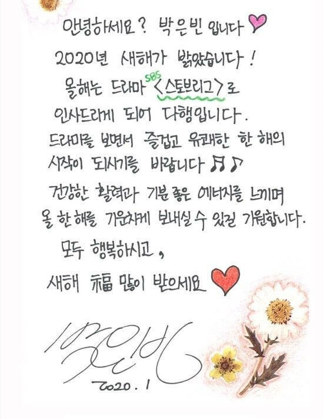 안녕하세요? 박은빈입니다
2020년 새해가 밝았습니다!
올해는 드라마 SBS <스토브리그>로
인사드리게 되어 다행입니다.
드라마를 보면서 즐겁고 유쾌한 한 해의
시작이 되시기를 바랍니다
건강한 활력과 기분 좋은 에너지를 느끼며
올 한해를 기운차게 보내실 수 있길 기원합니다.
모두 행복하시고,
새해 福 많이 받으세요
박은빈
2020. 1